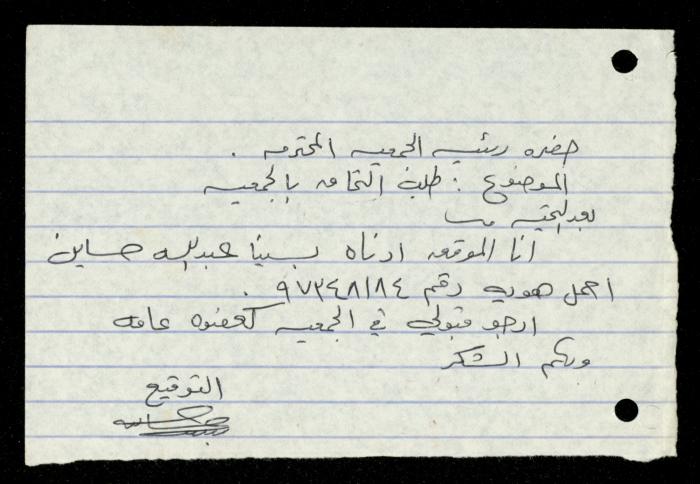 حضره رئيس الجمعيه المحترمه .
الموضوع : طلب التحاق بالجمعيه
بعد التحيه
انا الموقعه ادناه بسينا عبدالله حساين
احمل هويه رقم ٩٧٣٤٨١٨٤ .
ارجو قبولي في الجمعيه كعضوه عامه
ولكم الشكر
التوقيع